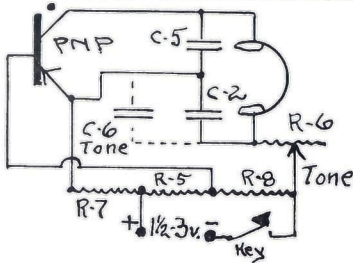 PNP
C-5
C-2
C-6
Tone
R-6
Tone
R-5
R-8
R-7
+ 1½-3v. −
Key